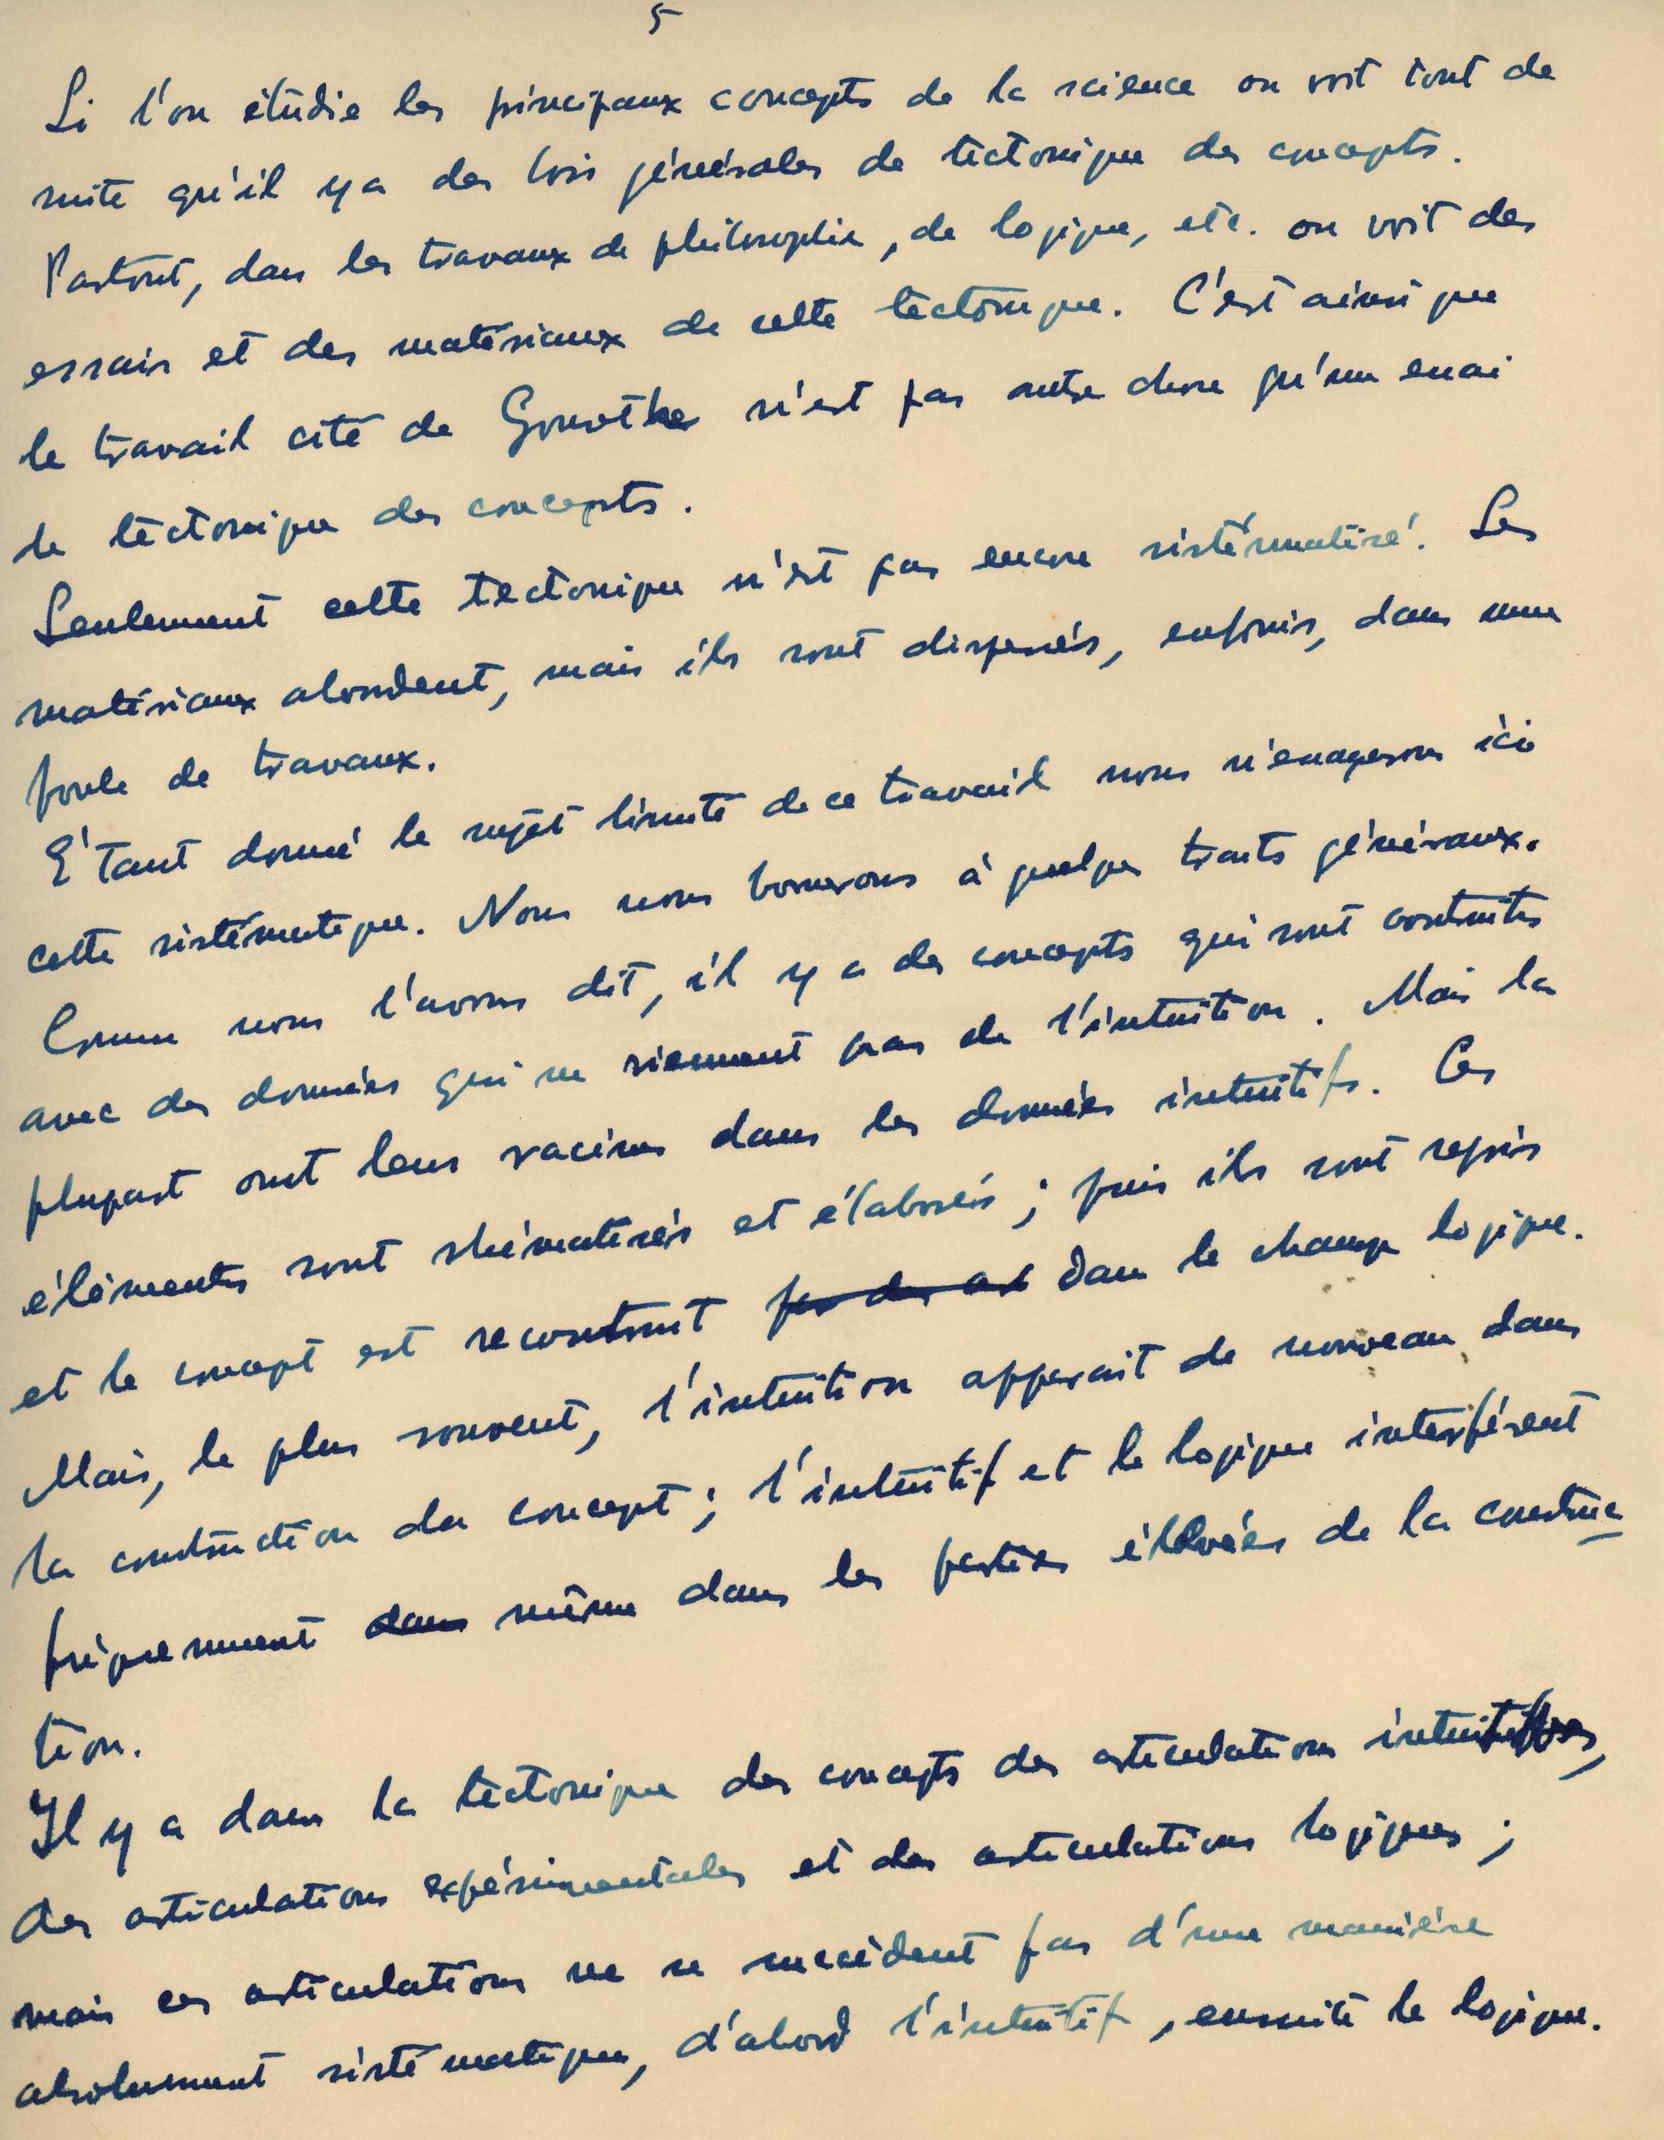 5
Si l'on étudie les principaux concepts de la science on voit tout de
suite qu'il y a des lois générales de tectonique des concepts.
Partout, dans les travaux de philosophie, de logique, etc. on voit des
essais et des matériaux de cette tectonique. C'est ainsi que
le travail cité de Gonseth n'est pas autre chose qu'un essai
de tectonique des concepts.
Seulement cette tectonique n'est pas encore sistématisé. Les
matériaux abondent, mais ils sont dispersés, enfouis, dans une
foule de travaux.
E'Tant donné le sujet limité de ce travail nous n'envisagerons ici
cette sistématique. Nous nous bornerons à quelques traits généraux.
Comme nous l'avons dit, il y a des concepts qui sont construits
avec des données qui ne viennent pas de l'intuition. Mais la
plupart ont leurs racines dans les données intuitifs. Ces
éléments sont shématisés et élaborés ; puis ils sont repris
et le concept est reconstruit dans le champ logique.
Mais, le plus souvent, l'intuition apparait de nouveau dans
la construction du concept ; l'intuitif et le logique interfèrent
fréquemment même dans les parties élevées de la construc
tion.
Il y a dans la tectonique des concepts des articulations intuitives,
des articulations expérimentales et des articulations logiques ;
mais ces articulations ne se succèdent pas d'une manière
absolument sistématique, d'abord l'intuitif, ensuite le logique.